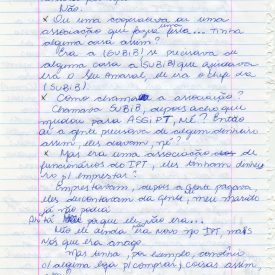 Não.
× Ou uma cooperativa ou uma
associação que fazia uma festa... tinha
alguma coisa assim?
Era a (SUBIB) se precisava de
alguma coisa a (SUBIB) que ajudava
era o Seu Amaral, ele era o chefe da
(SUBIB).
× Como chamava a associação?
Chamava SUBIB, depois acho que
mudou para ASSIPT, né? Então
aí a gente precisava de algum dinheiro
assim, eles davam, né?
× Mas era uma associação dos
funcionários do IPT, eles tinham dinheiro
p/ emprestar?
Emprestavam, depois a gente pagava,
eles descontavam da gente, meu marido
já não podia
Ah tá porque ele não era...
Não ele ainda era novo no IPT, mais
nós que era antigo.
Mas tinha, por exemplo, convênio
c/ alguma loja p/ comprar, coisas assim,